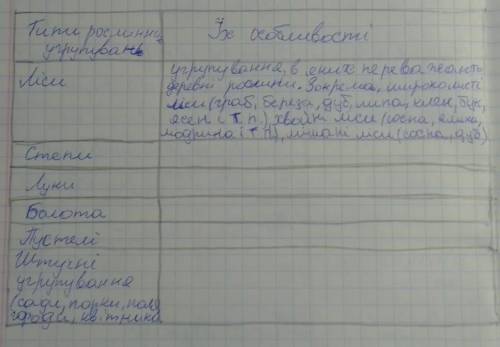 Типи рослинних
угрупувань
Їх особливості
Ліси
угрупування, в яких переважають
деревні рослини. Зокрема, широколисті
ліси (граб, береза, дуб, липа, клен, бук,
ясен і т. п.), хвойні ліси (сосна, ялина,
модрина і т п), мішані ліси (сосна, дуб)
Степи
Луки
Болота
Пустелі
Штучні
угрупування
(сади, парки, поля
городи, квітники